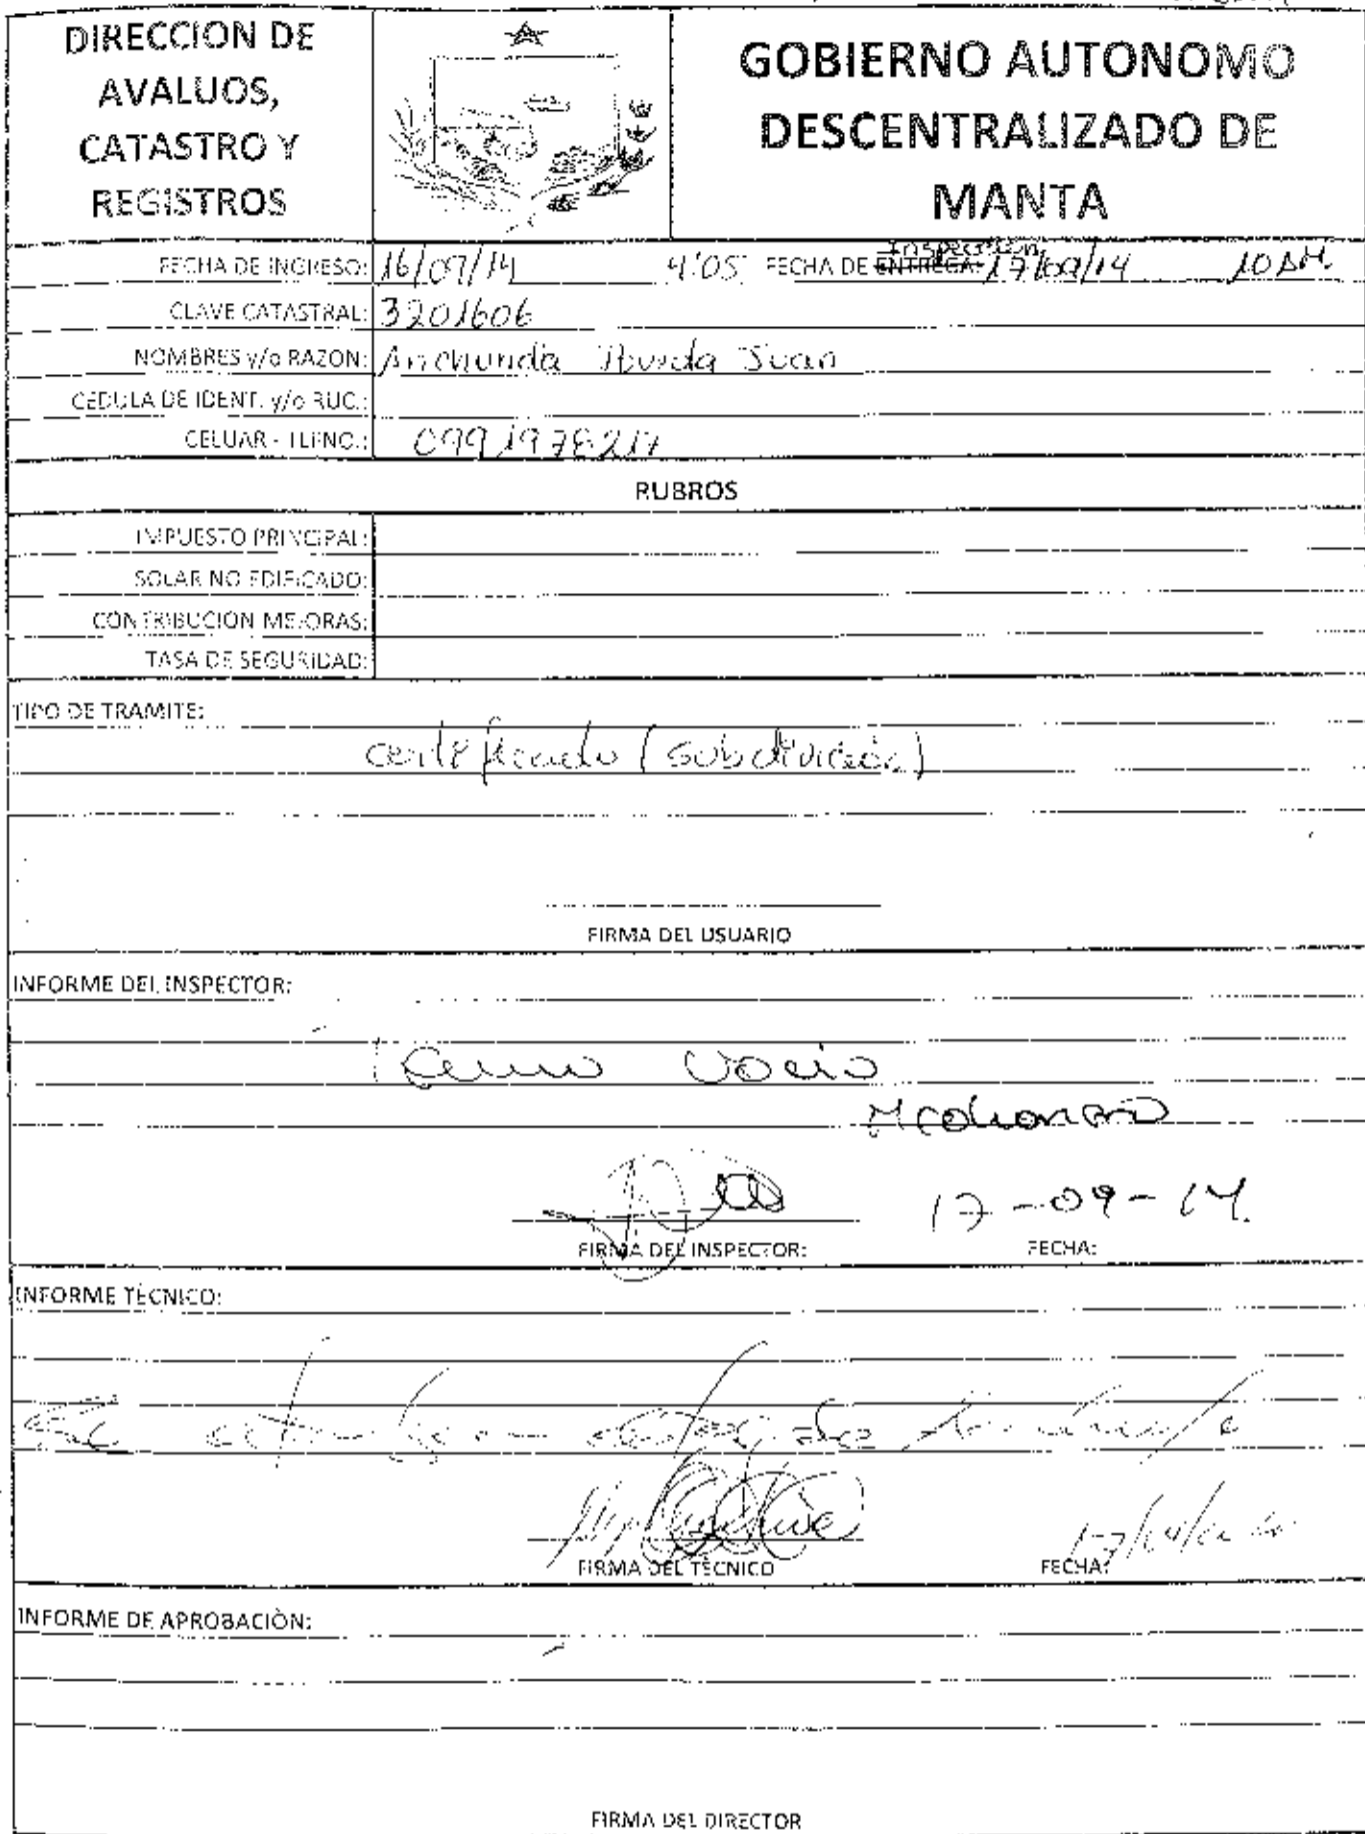 DIRECCION DE
AVALUOS,
CATASTRO Y
REGISTROS
GOBIERNO AUTONOMO
DESCENTRALIZADO DE
MANTA
FECHA DE INGRESO: 16/09/14 4:05 FECHA DE ENTREGA: Inspección 17/09/14 10 AM.
CLAVE CATASTRAL: 3201606
NOMBRES y/o RAZON: Anchundia Juan
CEDULA DE IDENT. y/o RUC.:
CELUAR - TLFNO.: 0991978217
RUBROS
IMPUESTO PRINCIPAL:
SOLAR NO EDIFICADO:
CONTRIBUCION MEJORAS:
TASA DE SEGURIDAD:
TIPO DE TRAMITE:
certificado (subdivición)
FIRMA DEL USUARIO
INFORME DEL INSPECTOR:
17-09-14.
FIRMA DEL INSPECTOR: FECHA:
INFORME TÉCNICO:
Se
FIRMA DEL TÉCNICO FECHA:
INFORME DE APROBACIÒN:
FIRMA DEL DIRECTOR